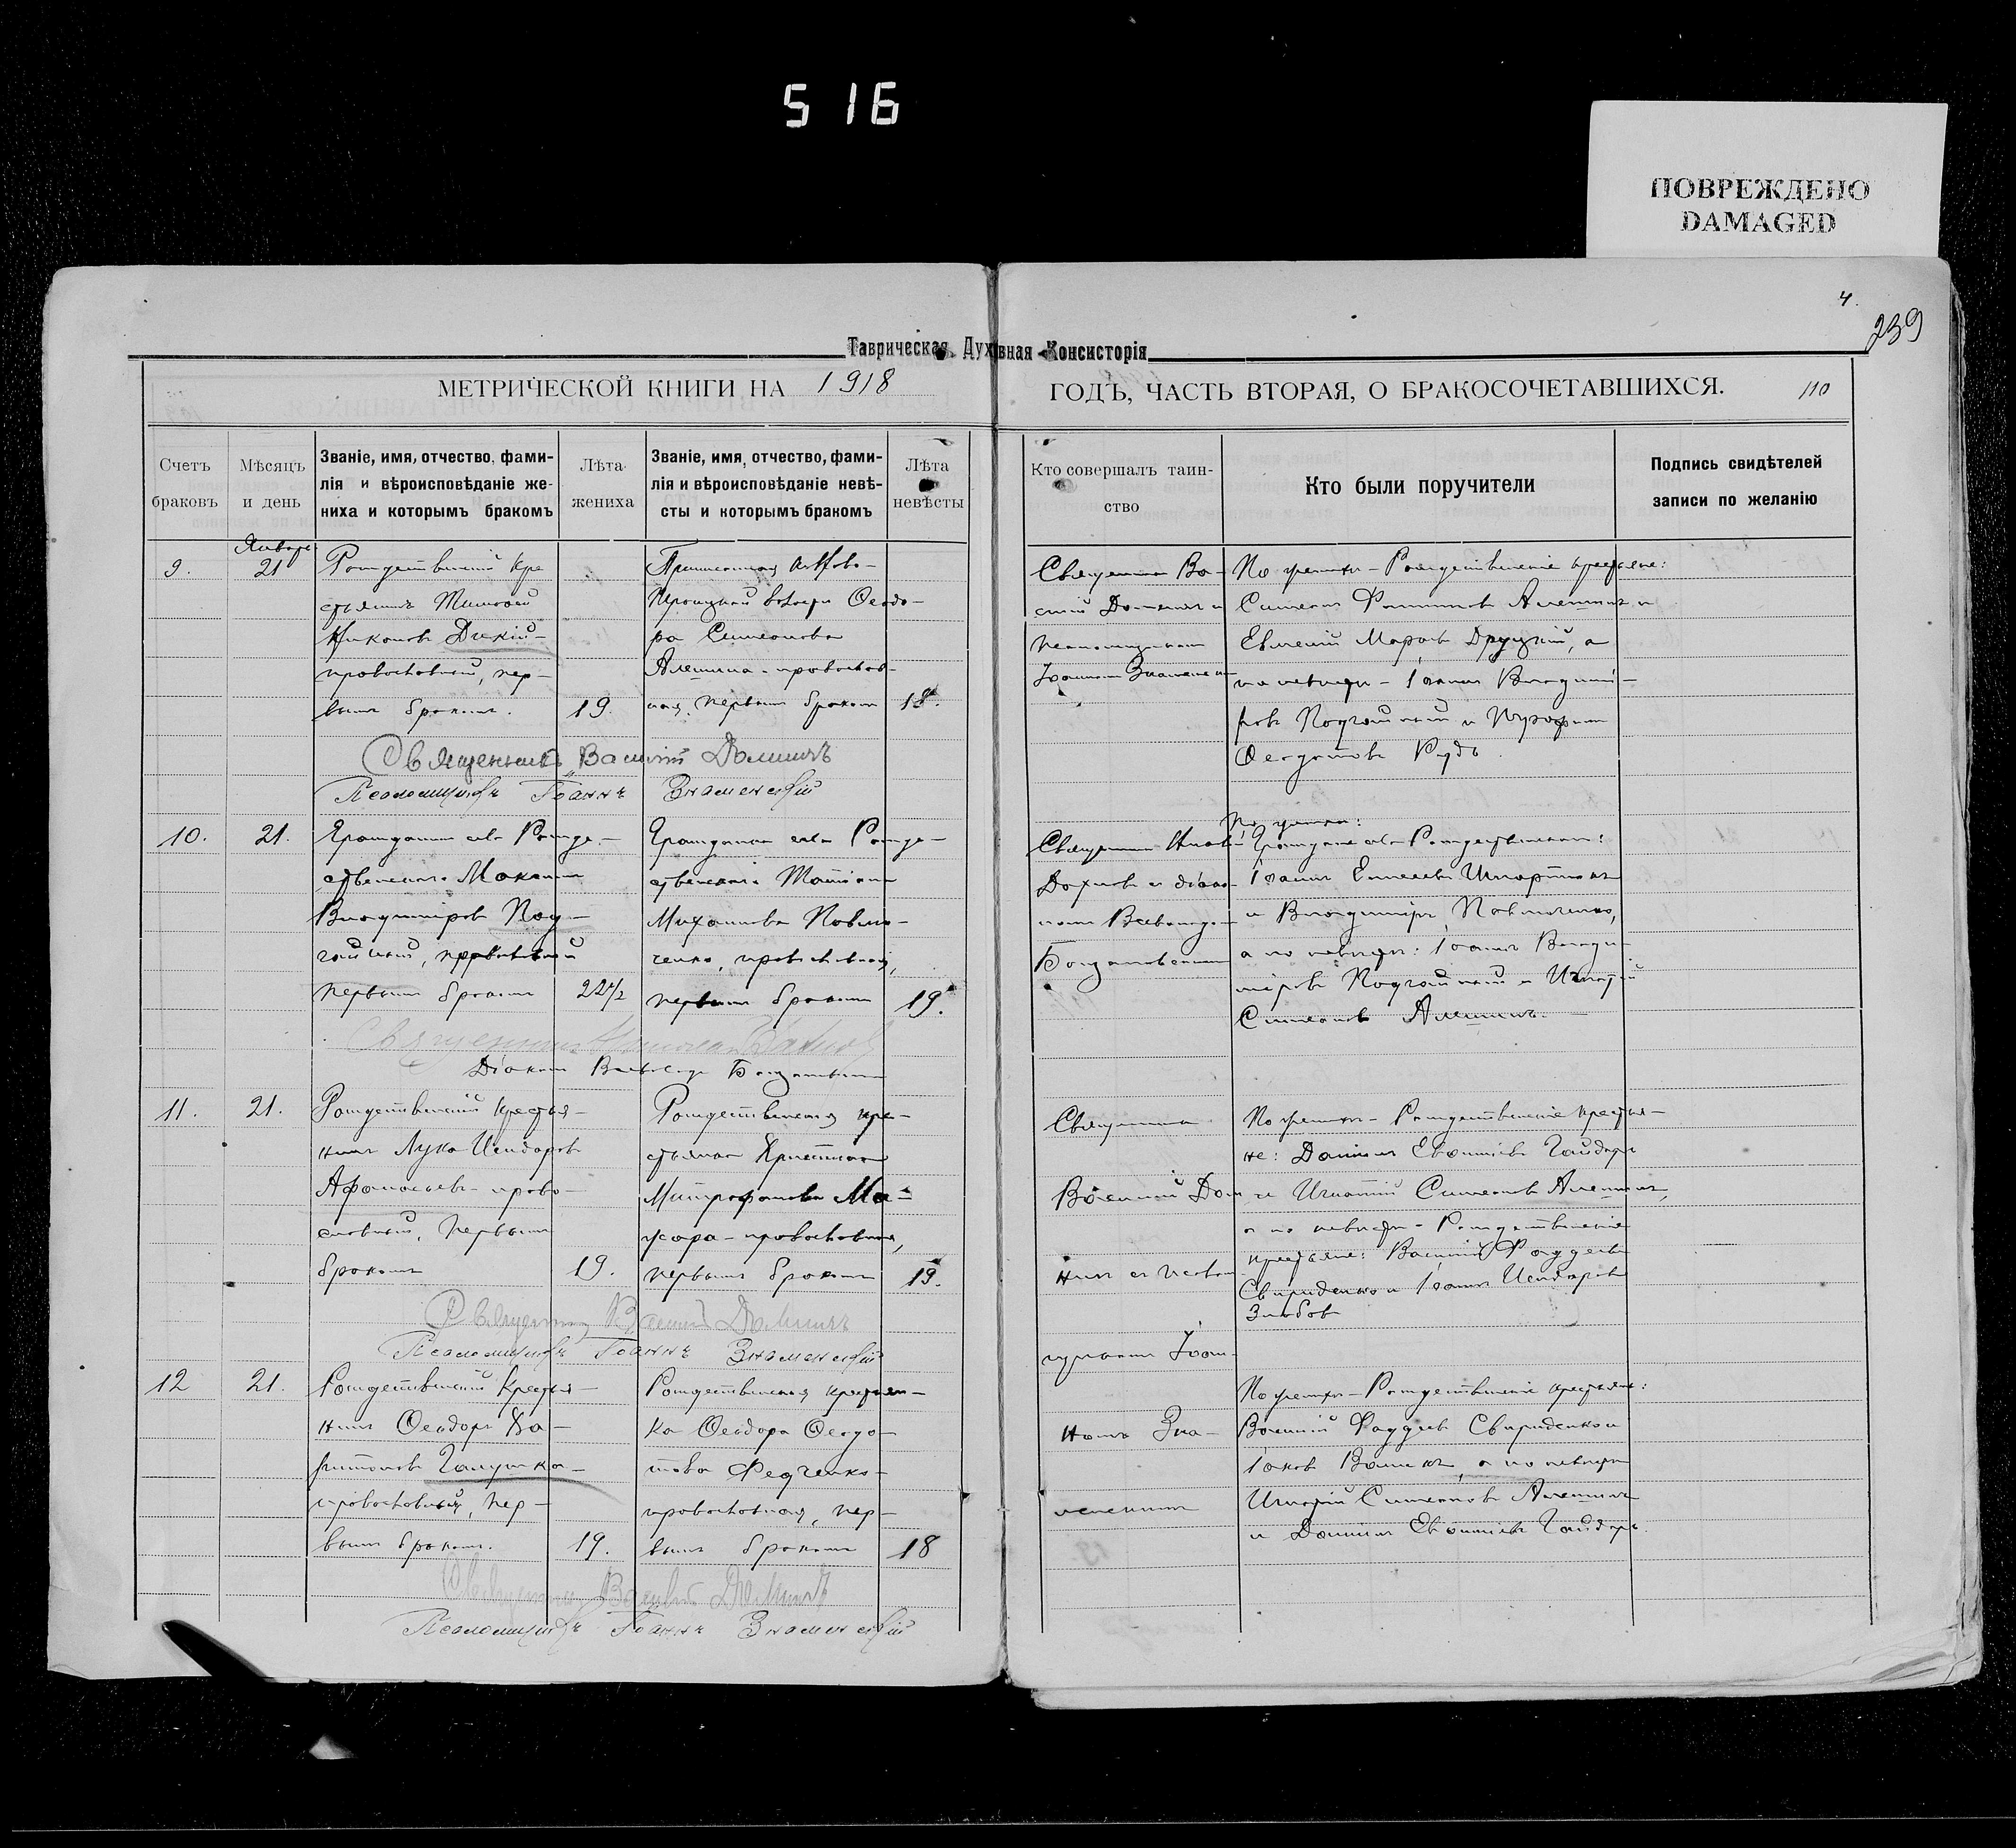 516
ПОВРЕЖДЕНО
DAMAGED
4.
239
Таврическая Духовная Консисторія
МЕТРИЧЕСКОЙ КНИГИ НА 1918
ГОДЪ, ЧАСТЬ ВТОРАЯ, О БРАКОСОЧЕТАВШИХСЯ.
110
Счетъ браковъ
Мѣсяцъ и день
Званіе, имя, отчество, фами-
лія и вѣроисповѣданіе же-
ниха и которымъ бракомъ
Лѣта жениха
Званіе, имя, отчество, фами-
лія и вѣроисповѣданіе невѣ-
сты и которымъ бракомъ
Лѣта невѣсты
Кто совершалъ таин-
ство
Кто были поручители
Подпись свидѣтелей
записи по желанію
Январь
9.
21
Рождественскій кре
стьянинъ Тимофей
Никоновъ Дикій-
православный, пер-
вымъ бракомъ.
19.
волости Ѳеодо-
ра Симеонова
Алешина - православ-
ная, первымъ бракомъ
18.
Священникъ Ва-
силій Доминъ и
псаломщикъ
Іоаннъ Знаменскій
По женихѣ - Рождественскіе крестьяне:
Симеонъ Алешинъ и
Евгеній Марковъ Друцкій, а
по невѣстѣ - Іоаннъ Владимі-
ровъ Подгайный и
Ѳеодотовъ Рудь.
Священникъ Василій Доминъ
Псаломщикъ Іоаннъ Знаменскій
10.
21.
Гражданинъ села Рожде-
ственскаго
Владиміровъ Под-
гайный, православный
первымъ бракомъ
22 1/2
Гражданка села Рожде-
ственскаго Татіана
Михайлова Павлю-
ченко, православная,
первымъ бракомъ
19.
Священникъ Николай
Дахновъ и діако-
номъ Всеволодъ
По женихѣ:
Граждане села Рождественскаго:
Іоаннъ
и Владиміръ Павлюченко,
а по невѣстѣ: Іоаннъ Влади-
міровъ Подгайный и Игнатій
Симеоновъ Алешинъ.
Священникъ Николай Дахновъ
Діаконъ Всеволодъ
11.
21.
Рождественскій крестья-
нинъ Лука Исидоровъ
Афанасьевъ - право-
славный, первымъ
бракомъ
19.
Рождественская кре-
стьянка Христина
Митрофанова Ма-
жара - православная,
первымъ бракомъ
19.
Священникъ
Василій Дом
инъ и псалом
щикъ Іоан-
нъ Зна-
менскій
По женихѣ - Рождественскіе крестья-
не: Даніилъ Евѳиміевъ Гайдаръ
и Игнатій Симеоновъ Алешинъ,
а по невѣстѣ - Рождественскіе
крестьяне: Василій Фаддеевъ
Свириденко и Іоаннъ Исидоровъ
Священникъ Василій Доминъ
Псаломщикъ Іоаннъ Знаменскій
12
21.
Рождественскій Крестья-
нинъ Ѳеодоръ Ха-
ритоновъ Галушка-
православный, пер-
вымъ бракомъ.
19.
Рождественская крестьян-
ка Ѳеодора Ѳеодо-
това Федченко-
православная, пер-
вымъ бракомъ
18
По женихѣ - Рождественскіе крестьяне:
Василій Фаддеевъ Свириденко и
Іаковъ а по невѣстѣ
Игнатій Симеоновъ Алешинъ
и Даніилъ Евѳиміевъ Гайдаръ.
Священникъ Василій Доминъ
Псаломщикъ Іоаннъ Знаменскій